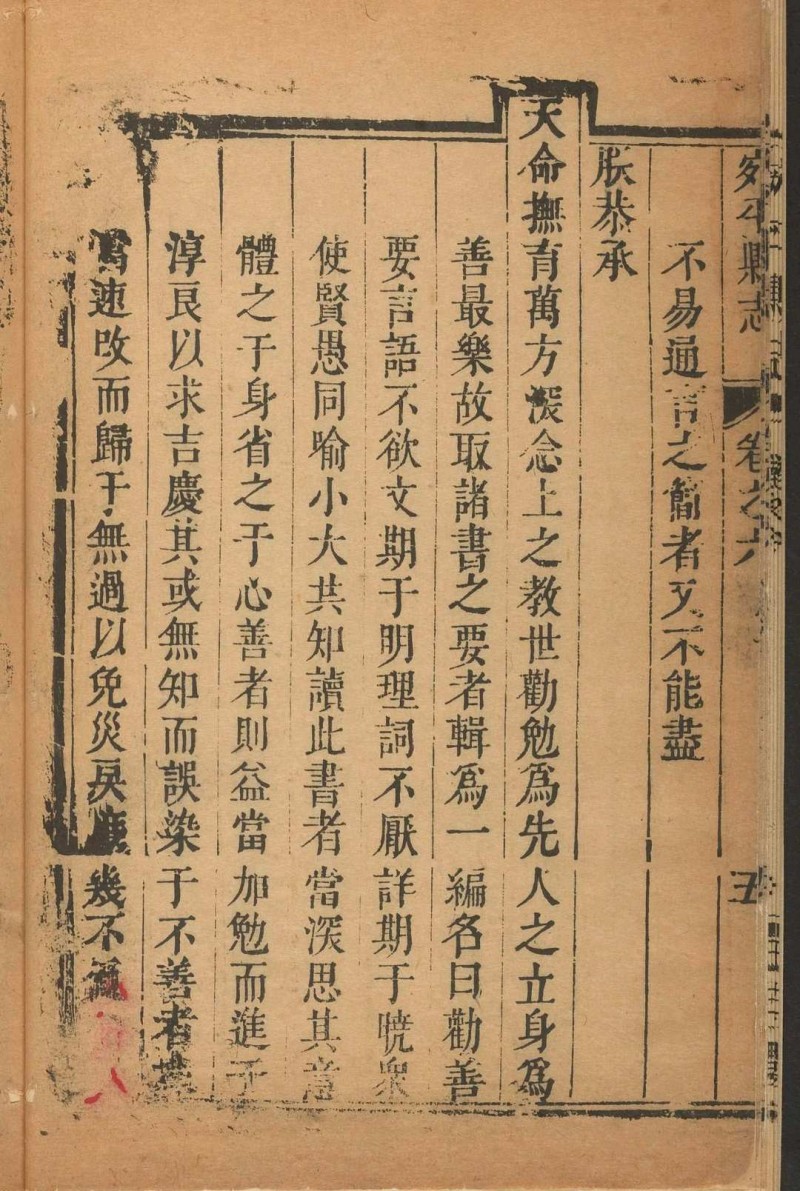 宛平縣志 卷之六 五
不易通言之簡者又不能盡
朕恭承
天命撫育萬方深念上之教世勸勉為先人之立身為
善最樂故取諸書之要者輯為一編名曰勸善
要言語不欲文期于明理詞不厭詳期于曉衆
使賢愚同喻小大共知讀此書者當深思其意
體之于身省之于心善者則益當加勉而進于
淳良以求吉慶其或無知而誤染于不善者
當速改而歸于無過以免災戾庶幾不